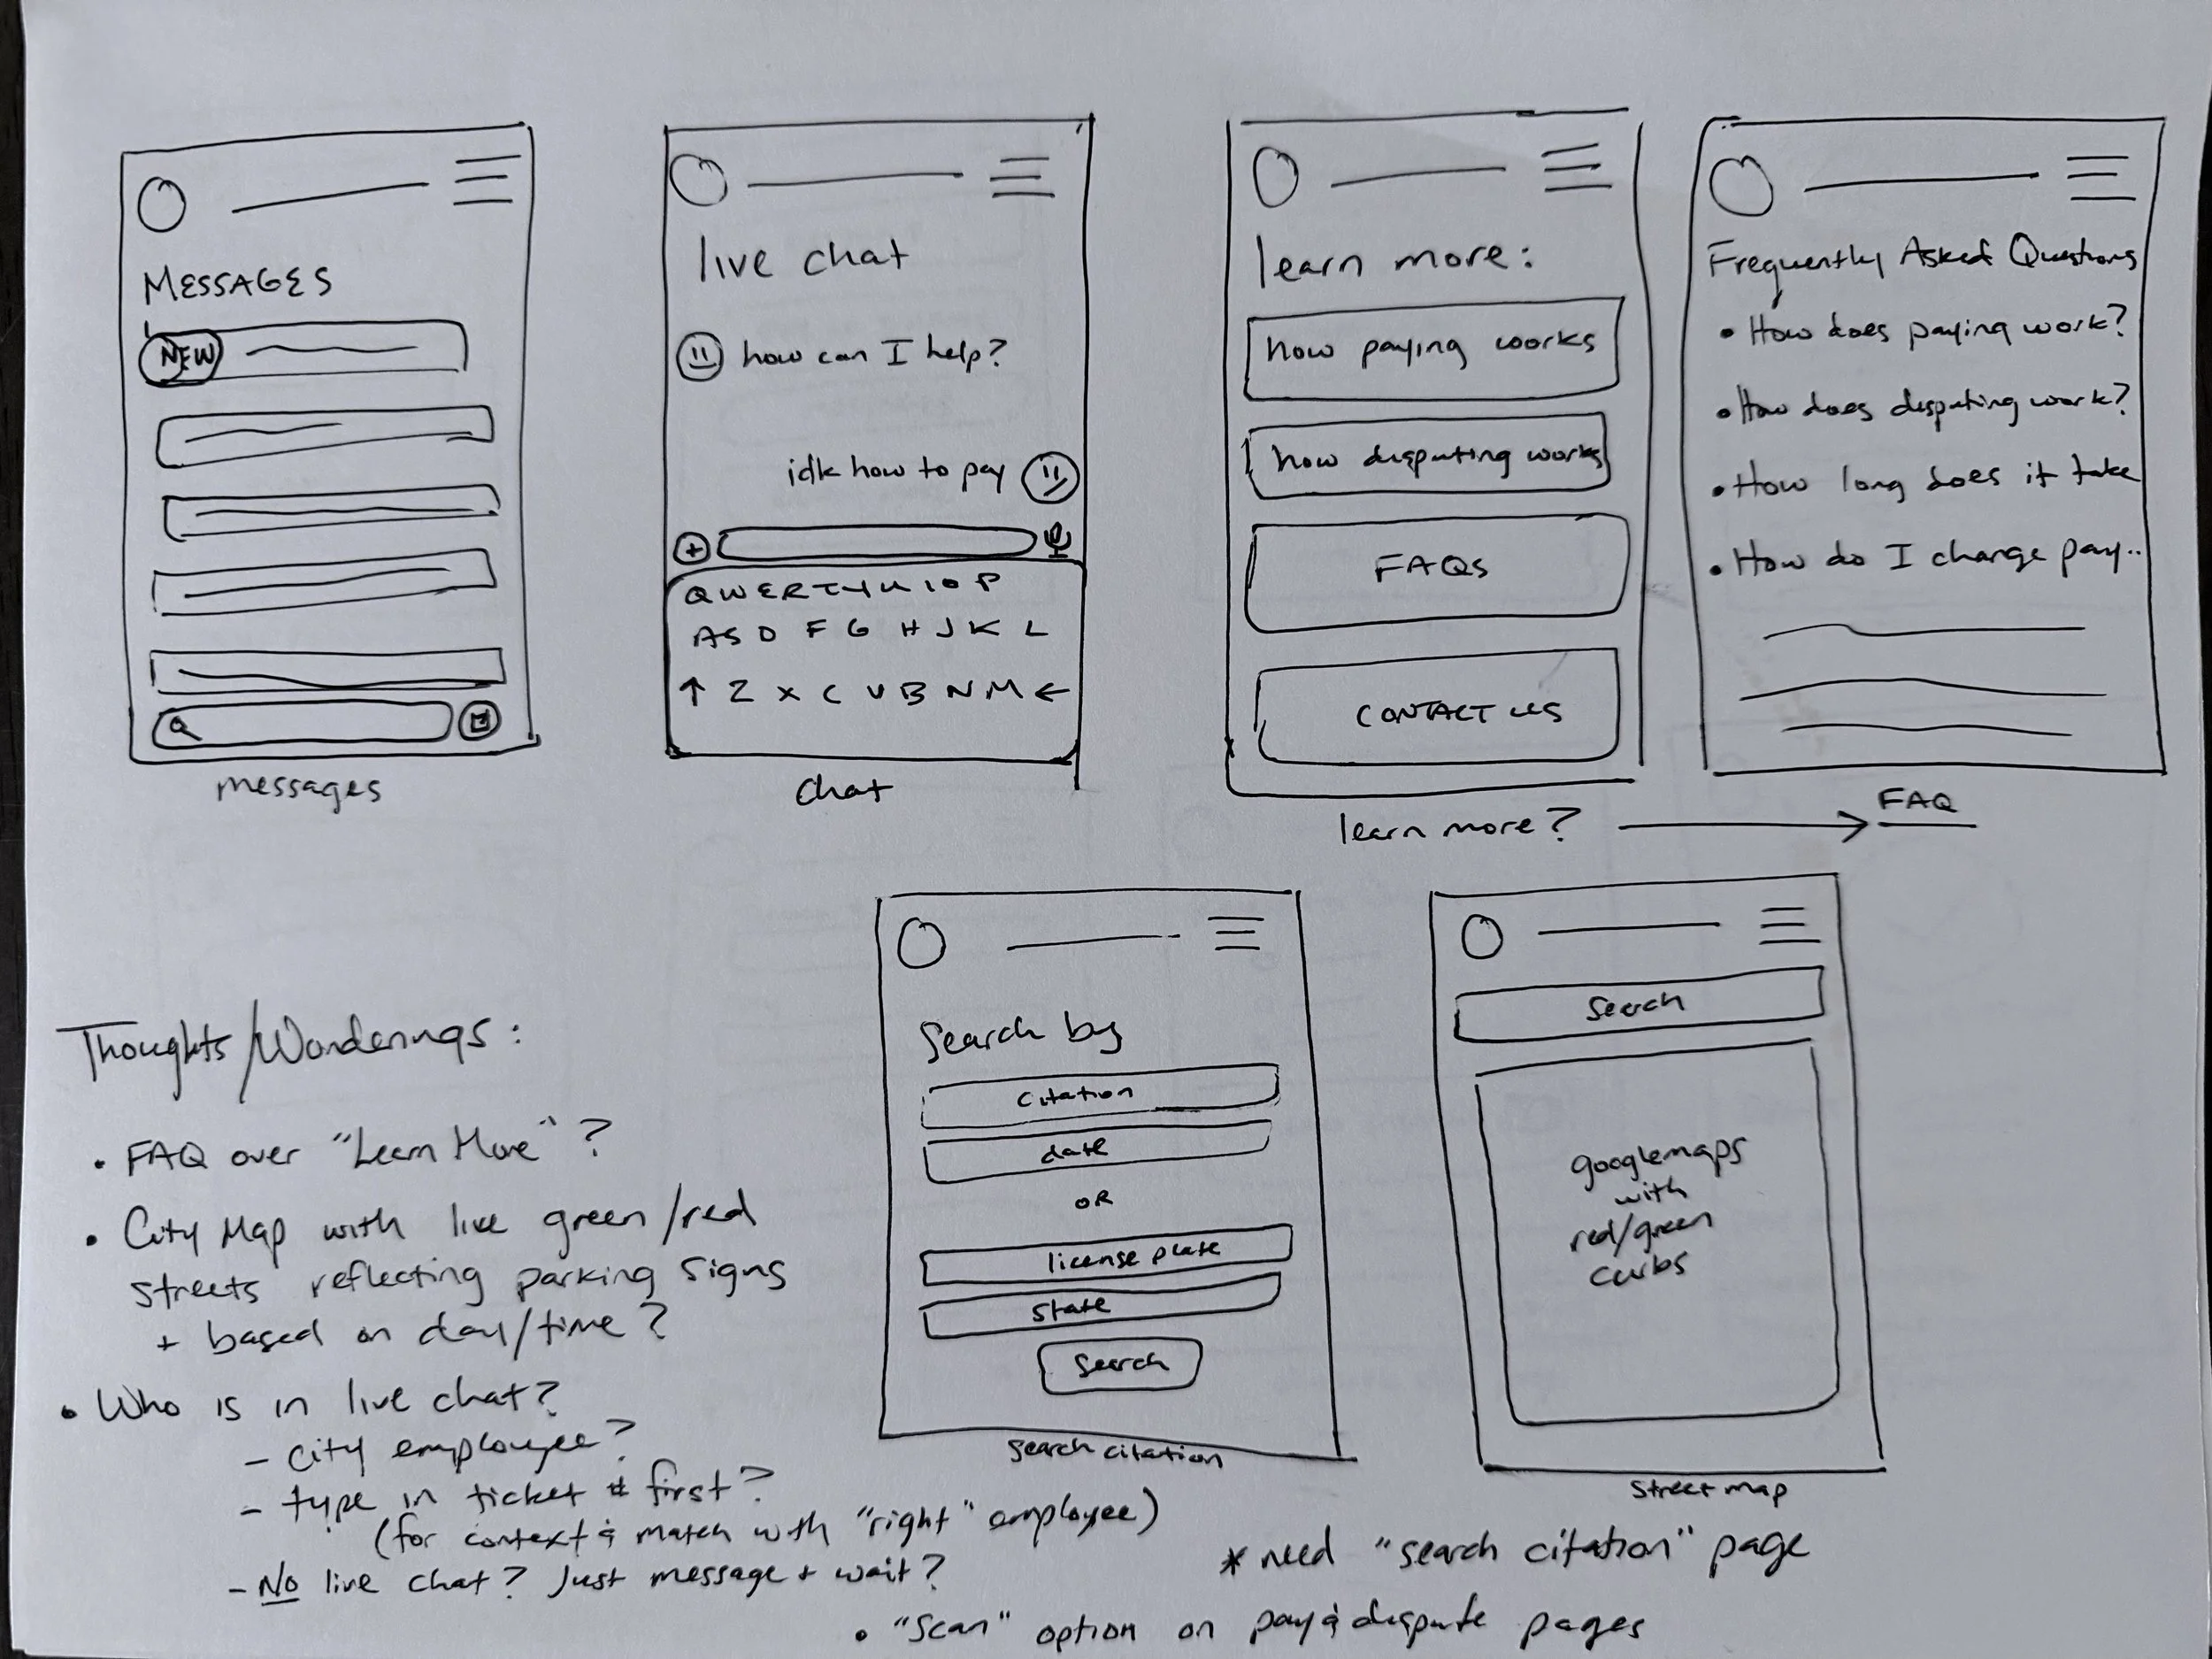 MESSAGES
NEW
messages
live chat
how can I help?
idk how to pay
QWERTYUIOP
ASDFGHJKL
↑ZXCVBNM←
chat
learn more:
how paying works
how disputing works
FAQs
CONTACT US
learn more?
Frequently Asked Questions
• How does paying work?
• How does disputing work?
• How long does it take
• How do I change pay..
FAQ
Search by
Citation
date
OR
license plate
State
Search
Search citation
Search
googlemaps
with
red/green
curbs
Street map
Thoughts/Wonderings:
• FAQ over "Learn More"?
• City Map with live green/red
streets reflecting parking signs
+ based on day/time?
• Who is in live chat?
- City employee?
- type in ticket # first?
(for context & match with "right" employee)
- No live chat? Just message + wait?
* need "search citation" page
• "Scan" option on pay & dispute pages